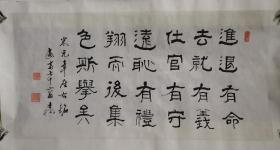 進退有命
去就有義
仕宦有守
遠恥有禮
翔而後集
色斯舉矣
宋元章座右銘